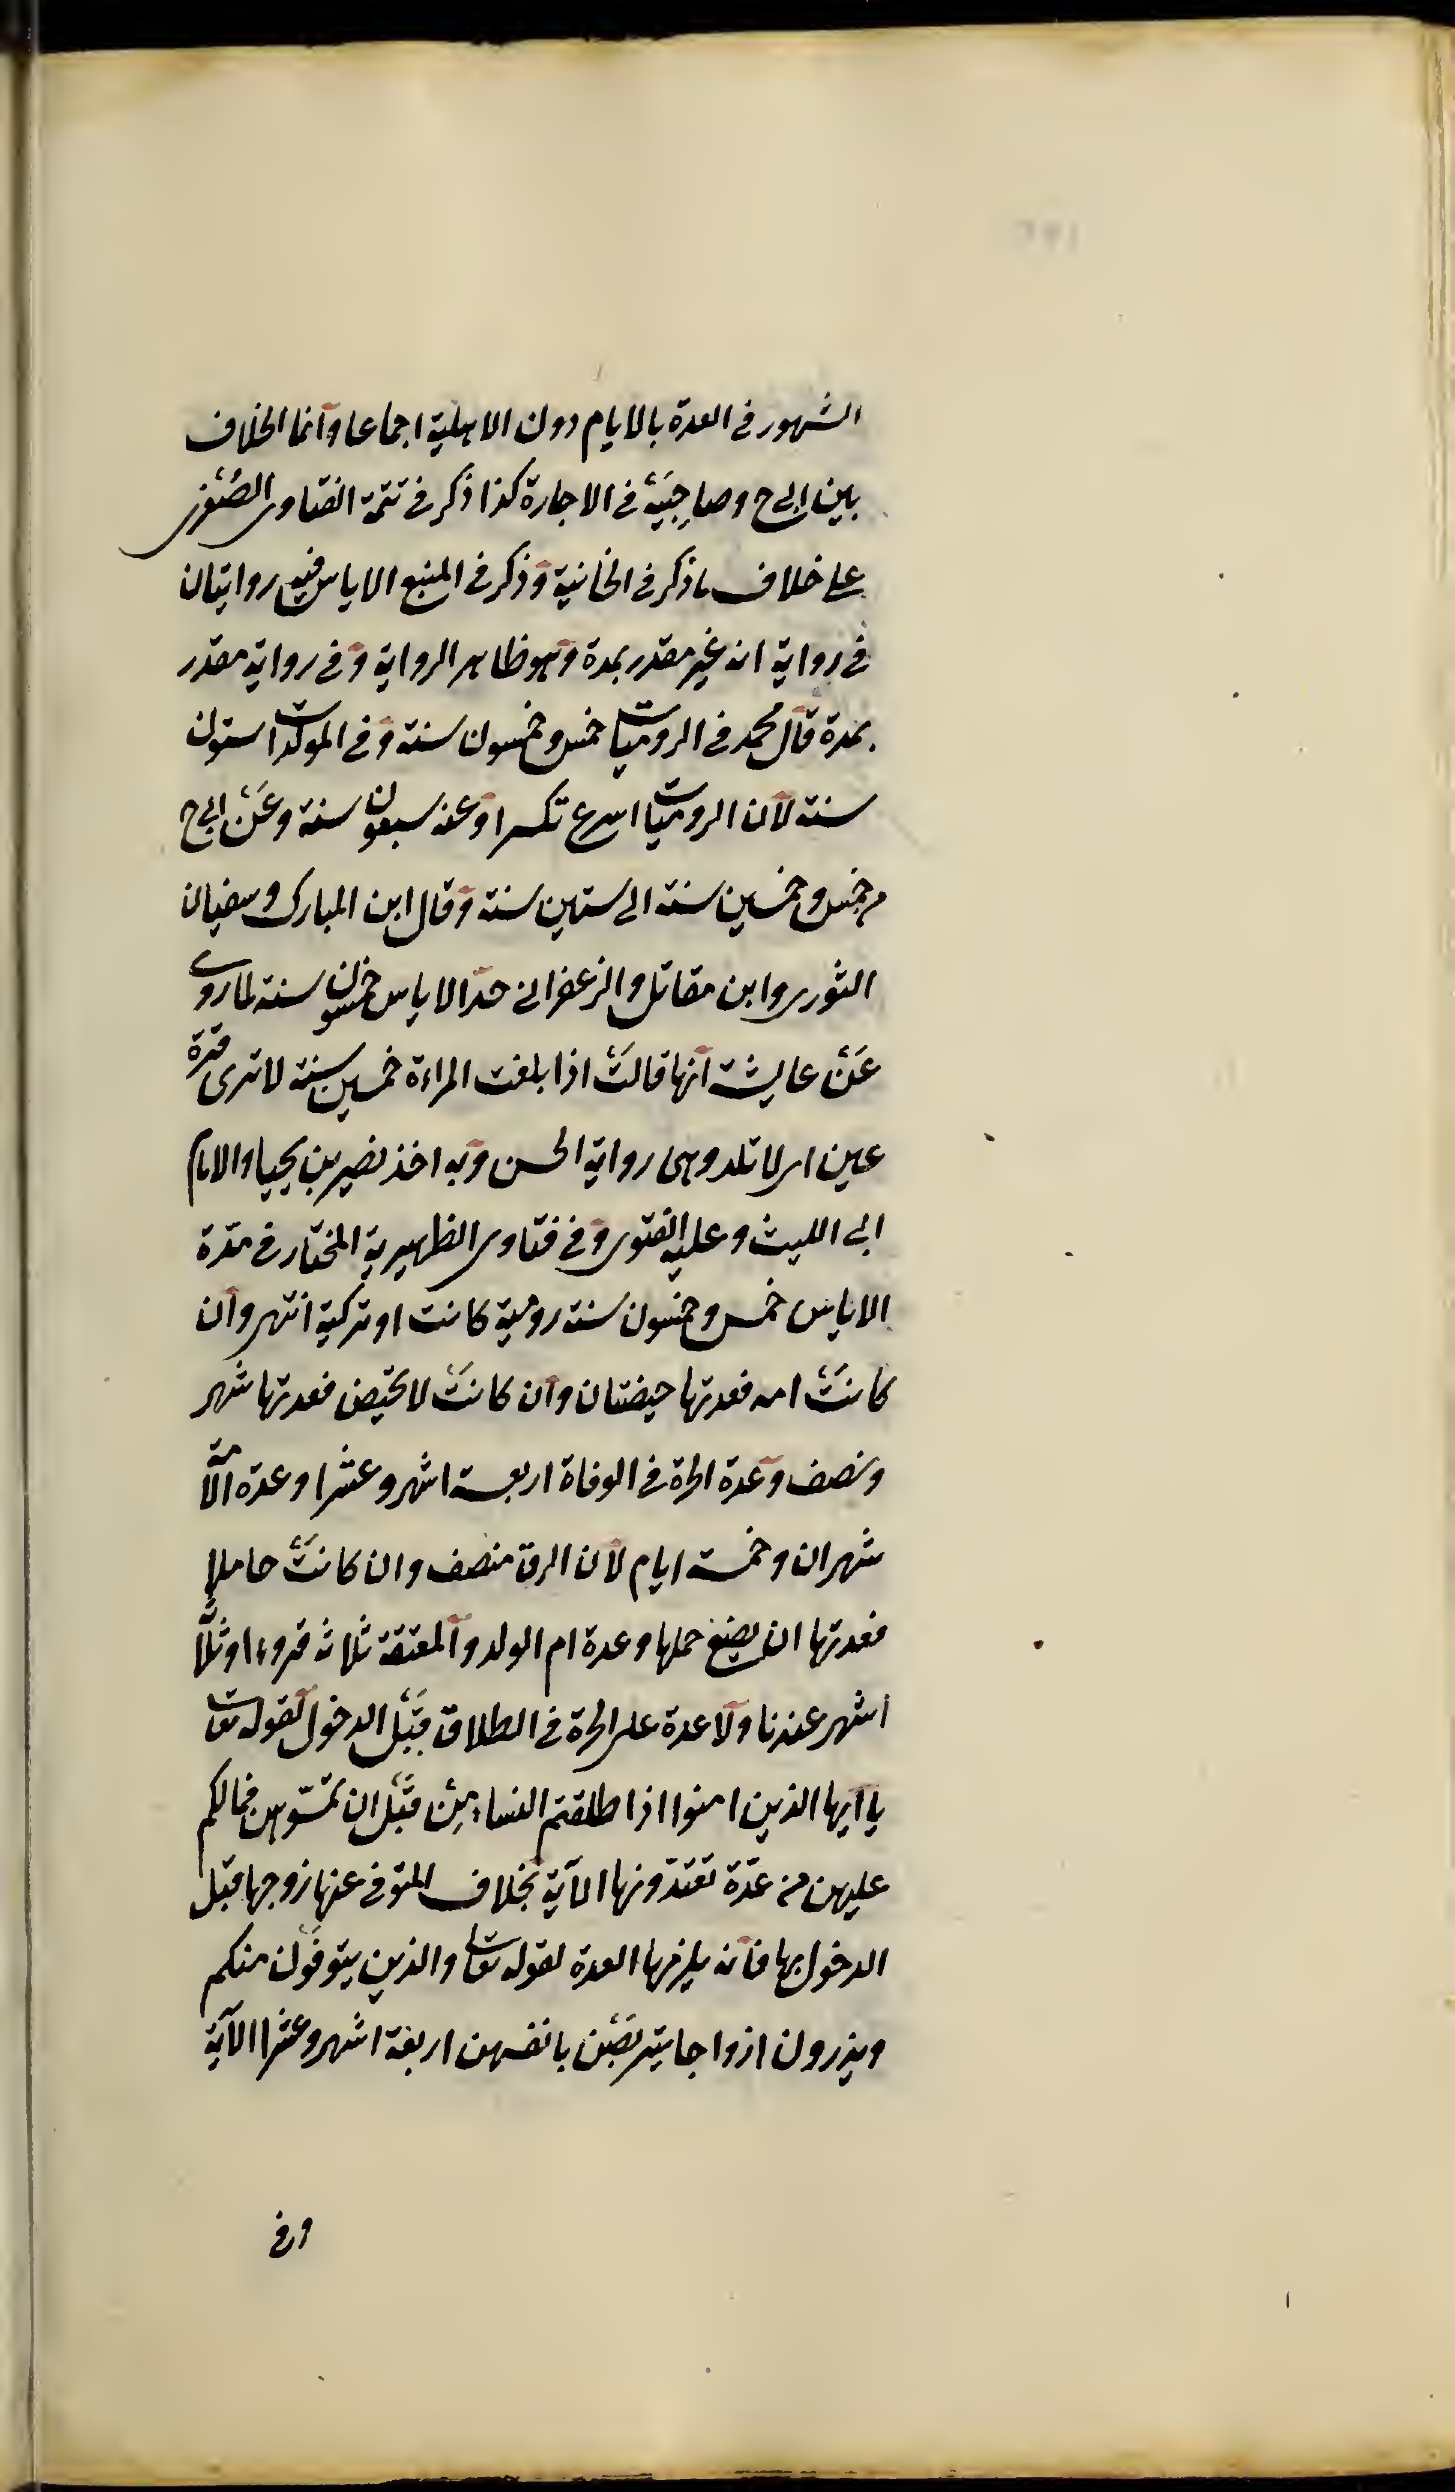 الشهور في العدة بالايام دون الاهلية اجماعا وانما الخلاف
بين ابي ح وصاحبَيْهْ في الاجارة كذا ذكر في تتمة الفتاوى الصُغرى
على خلاف ما ذكر في الخانية وذكر في المنبع الاياس فيه روايتان
في رواية انه غير مقدر بمدة وهو ظاهر الرواية وفي رواية مقدر
بمدة قال محمد في الروميات خمس وخمسون سنة وفي المولدات ستون
سنة لان الروميات اسرع تكسرا وعنه سبعون سنة وعَنْ ابي ح
من خمس وخمسين سنة الى ستين سنة وقال ابن المبارك وسفيان
الثوري وابن مقاتل والزعفراني حدّ الاياس خمسون سنة لما روى
عَنْ عايشة انها قالَتْ اذا بلغت المراءة خمسين سنة لا ترى قرة
عين اى لا تلد وهى رواية الحسن وبه اخذ نصير بن يحيا والامام
ابي الليث وعليه الفتوى وفي فتاوى الظهيرية المختار في مدة
الاياس خمس وخمسون سنة رومية كانت او تركية انتهى وان
كانَتْ امه فعدتها حيضتان وان كانَتْ لا تحيض فعدتها شهر
ونصف وعدة الحرة في الوفاة اربعة اشهر وعشرا وعدة الامة
شهران وخمسة ايام لان الرق منصف وان كانَتْ حاملا
فعدتها ان يضع حملها وعدة ام الولد والمعتقة ثلاثة قروء او ثلاثة
اشهر عندنا ولا عدة على الحرة في الطلاق قَبْل الدخول لقوله تعالى
يا آيها الذين امنوا اذا طلقتم النساء مِنْ قَبْل ان تمسّوهن فما لكم
عليهن من عدّة تعتدّونها الآية بخلاف المتوفى عنها زوجها قبل
الدخول بها فانه يلزمها العدة لقوله تعالى والذين يتوفَوْن منكم
ويذرون ازواجا يتربصْن بانفسهن اربعة اشهر وعشرا الآية
وفي